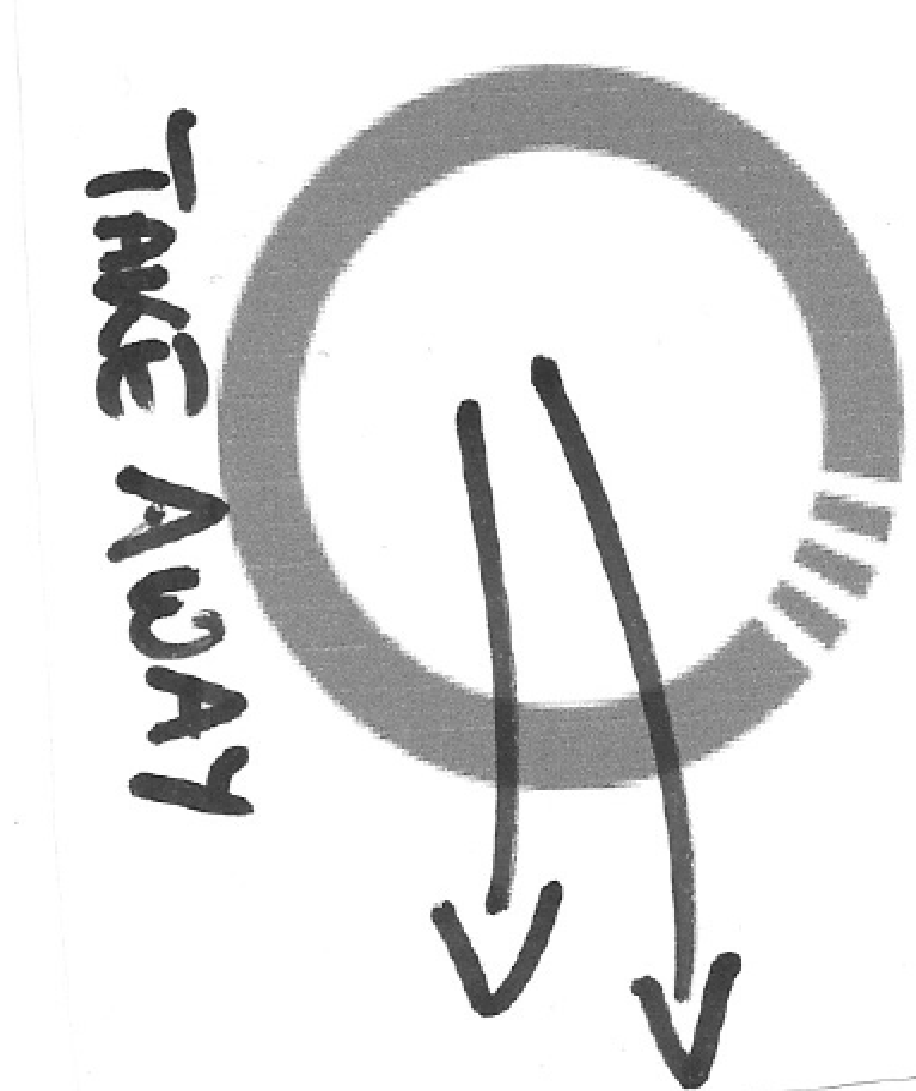 TAKE AWAY